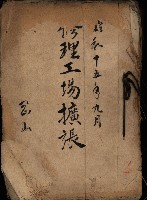 昭和十五年九月
修理工場擴張